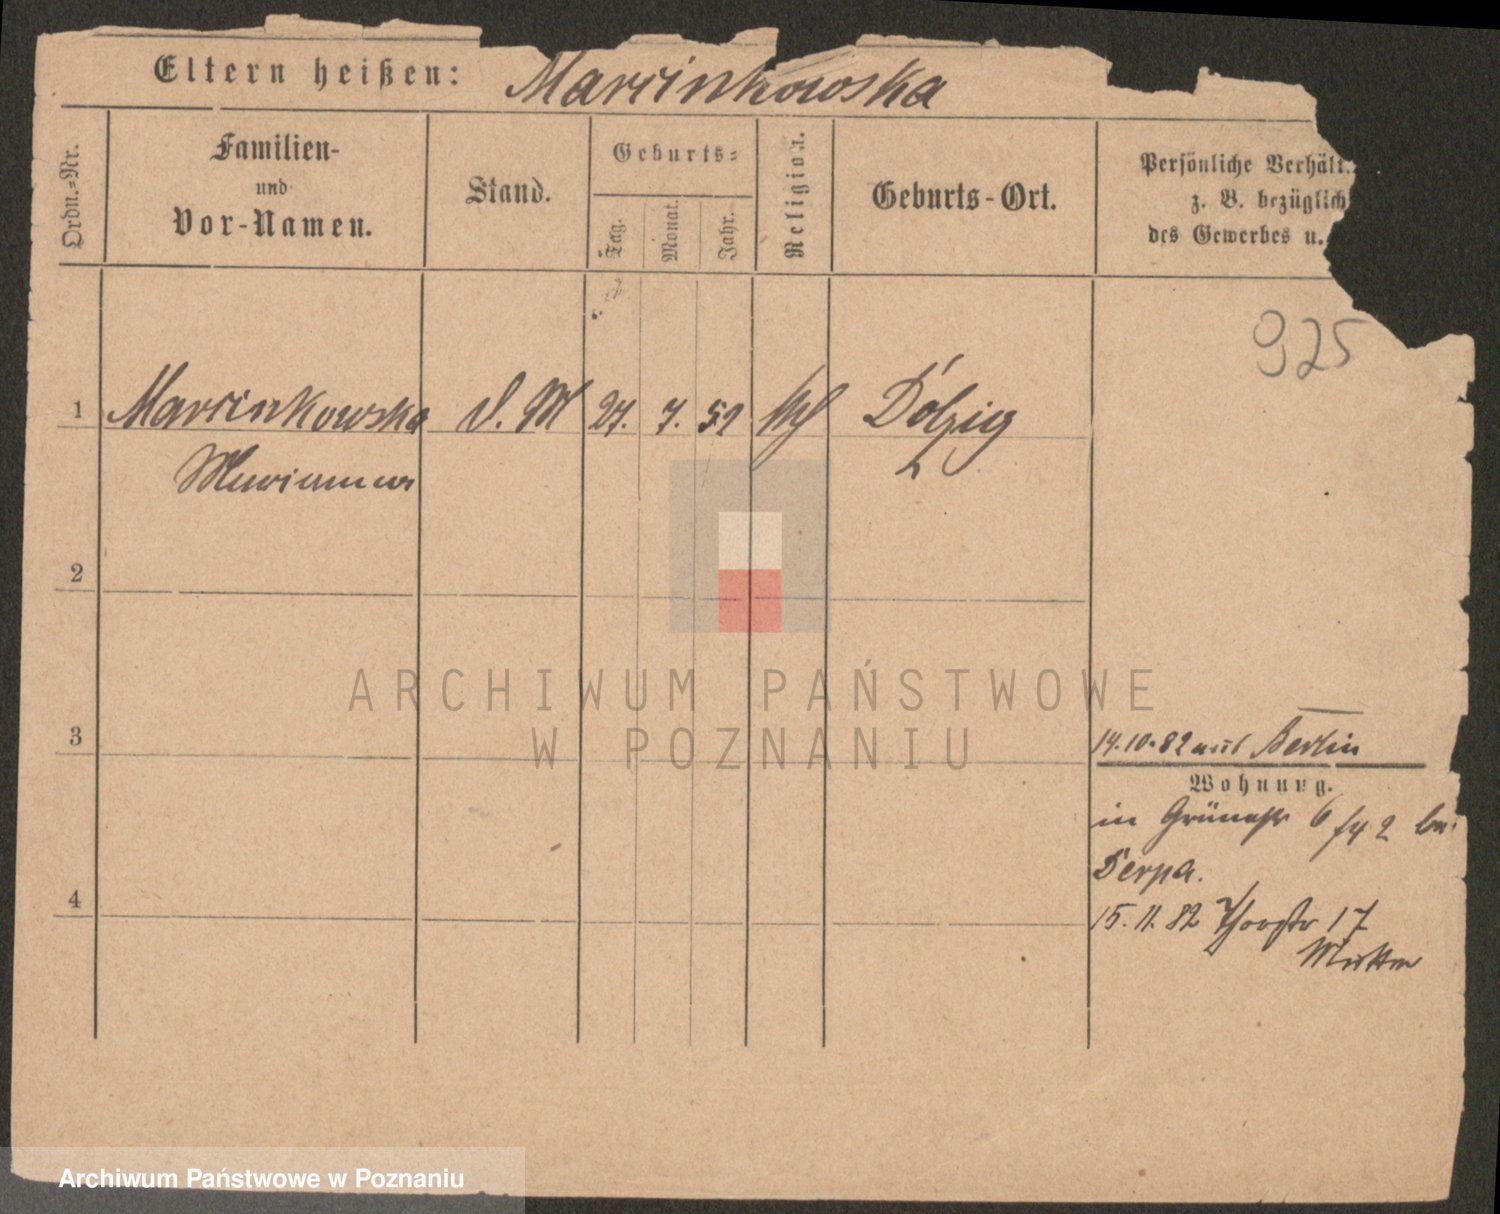 Eltern heißen: Marcinkowska
Ordn.-Nr.
Familien-
und
Vor-Namen.
Stand.
Geburts-
Tag.
Monat.
Jahr.
Religion.
Geburts-Ort.
Persönliche Verhält
z. B. bezüglich
des Gewerbes u.
925
1 Marcinkowska D. M 27. 7. 51 Dolzig
Marianna
2
3
14.10.82 aus Berlin
Wohnung.
in Grünestr 6 2 bei
Derpa.
4
15.11.82 Thorstr 17
ARCHIWUM PAŃSTWOWE
W POZNANIU
Archiwum Państwowe w Poznaniu